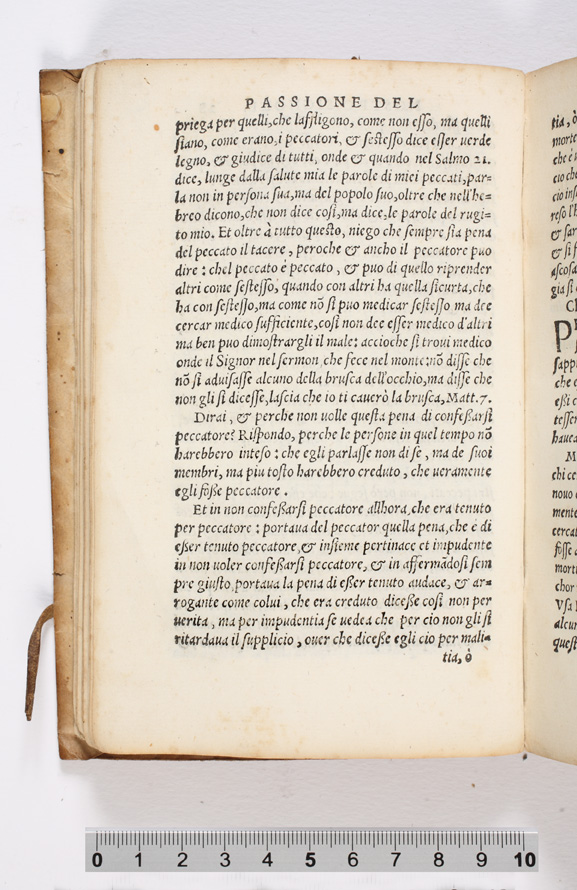 PASSIONE DEL
priega per quelli, che l'affligono, come non esso, ma quelli
siano, come erano, i peccatori, & sestesso dice esser uerde
legno, & giudice di tutti, onde & quando nel Salmo 21.
dice, lunge dalla salute mia le parole di miei peccati, par=
la non in persona sua, ma del popolo suo, oltre che nell'he=
breo dicono, che non dice così, ma dice, le parole del rugi=
to mio. Et oltre à tutto questo, niego che sempre sia pena
del peccato il tacere, peroche & ancho il peccatore puo
dire: chel peccato è peccato, & puo di quello riprender
altri come sestesso, quando con altri ha quella sicurta, che
ha con sestesso, ma come nō si puo medicar sestesso ma dee
cercar medico sufficiente, così non dee esser medico d'altri
ma ben puo dimostrargli il male: accioche si troui medico
onde il Signor nel sermon, che fece nel monte: nō disse che
nō si aduisasse alcuno della brusca dell'occhio, ma disse che
non gli si dicesse, lascia che io ti cauerò la brusca, Matt. 7.
Dirai, & perche non uolle questa pena di confessarsi
peccatore? Rispondo, perche le persone in quel tempo nō
harebbero inteso: che egli parlasse non di se, ma de suoi
membri, ma piu tosto harebbero creduto, che ueramente
egli fosse peccatore.
Et in non confessarsi peccatore allhora, che era tenuto
per peccatore: portaua del peccator quella pena, che è di
esser tenuto peccatore, & insieme pertinace et impudente
in non uoler confessarsi peccatore, & in affermādosi sem
pre giusto, portaua la pena di esser tenuto audace, & ar=
rogante come colui, che era creduto dicesse così non per
uerita, ma per impudentia se uedea che per cio non gli si
ritardaua il supplicio, ouer che dicesse egli cio per mali=
tia, ò
tia, ò
morte
che è
cio che
cio ins
reso l'h
& sar
& si f
ascosa
gia si
C
P
sapp
che
essi c
tesser
hauea
M
chi ce
nouo
mente
cercat
fosse
morti
chor
Vsa
alcun
quest
0 1 2 3 4 5 6 7 8 9 10